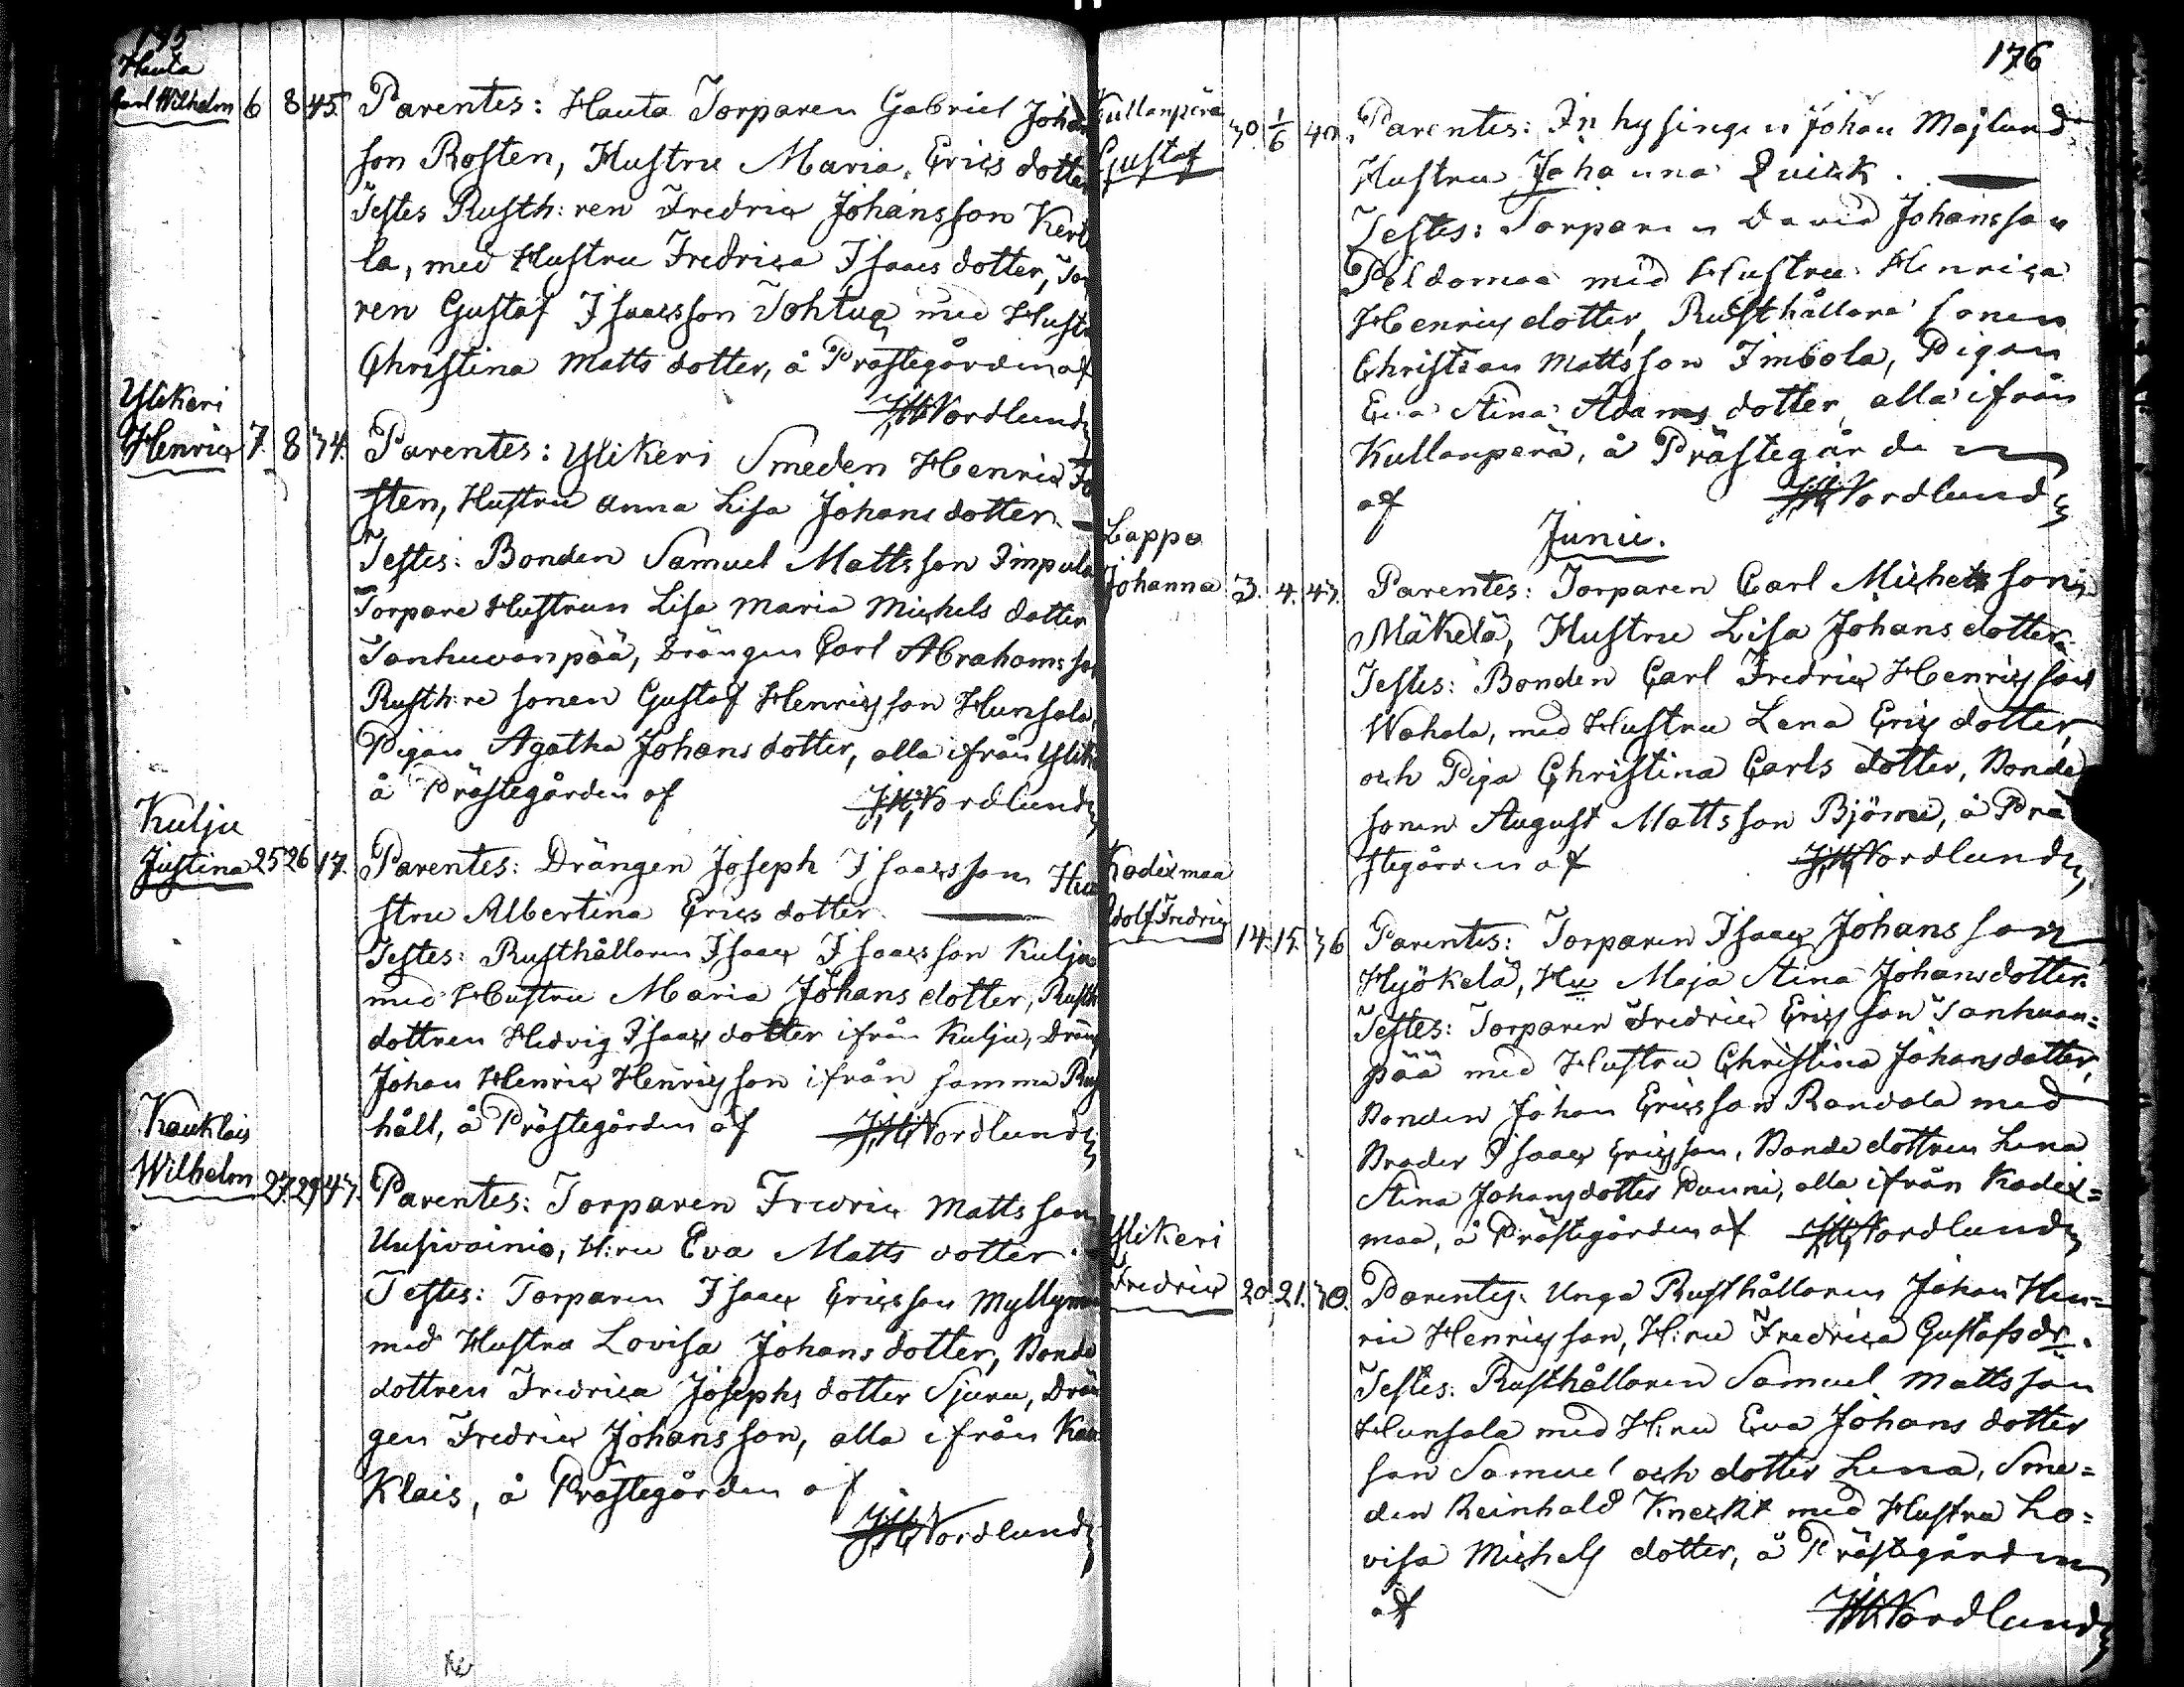 175
Hauta
Carl Wilhelm 6 8 45. Parentes: Hauta Torparen Gabriel Johan
son Rosten, Hustru Maria Erics dotter
Testes Rusth:ren Fredric Johansson Kert
la, med Hustru Fredrica Isaacs dotter, Tor
ren Gustaf Isaacsson Tohtua med Hustr
Christina Matts dotter, å Prästegården af
JHNordlund
Ylikeri
Henric 7. 8 34. Parentes: Ylikeri Smeden Henric
sten, Hustru Anna Lisa Johans dotter
Testes: Bonden Samuel Mattsson Impola
Torpare Hustrun Lisa Maria Michels dotter
Tanhuvanpää, Drängen Carl Abrahamsson
Rusth:re sonen Gustaf Henricsson Hunsala,
Pigan Agatha Johans dotter, alla ifrån Ylike
å Prästegården af JHNordlund
Kulju
Justina 25 26 17. Parentes: Drängen Joseph Isaacsson Hu
stru Albertina Erics dotter.
Testes: Rusthållaren Isaac Isaacsson Kulju
med Hustru Maria Johans dotter, Rusth
dottren Hedvig Isaacs dotter ifrån Kulju, Dräng
Johan Henric Henricsson ifrån samma Rus
håll, å Prästegården af JHNordlund
Kauklais
Wilhelm 27. 29 43. Parentes: Torparen Fredric Mattsson
Uusivainio, H:ru Eva Matts dotter.
Testes: Torparen Isaac Ericsson Myllym
med Hustru Lovisa Johans dotter, Bonde
dottren Fredrica Josephs dotter Sjuru, Drän
gen Fredric Johansson, alla ifrån Kau
klais, å Prästegården af
JHNordlund
176
Kullanperä
Gustaf 30. 1/6 40. Parentes: Inhysingen Johan Majlund
Hustru Johanna Quick.
Testes: Torparen David Johansson
Peldomaa med Hustru Henrica
Henrics dotter, Rusthållare sonen
Christian Mattsson Imbola, Pigan
Eva Stina Adams dotter, alla ifrån
Kullanperä, å Prästegården
af JHNordlund
Junii.
Lappa
Johanna 3. 4. 43. Parentes: Torparen Carl Michelsson
Mäkelä, Hustru Lisa Johans dotter.
Testes: Bonden Carl Fredric Henricsson
Wahala, med Hustru Lena Erics dotter,
och Piga Christina Carls dotter, Bonde
sonen August Mattsson Björni, å Prä
stegården af JHNordlund
Kodixmaa
Adolf Fredric 14. 15. 36 Parentes: Torparen Isaac Johansson
Hyökelä, Hu Maja Stina Johansdotter.
Testes: Torparen Fredric Ericsson Tanhuan=
pää med Hustru Christina Johansdotter,
Bonden Johan Ericsson Randala med
Broder Isaac Ericsson, Bonde dottren Lena
Stina Johansdotter Punni, alla ifrån Kodix=
maa, å Prästegården af JHNordlund
Ylikeri
Fredric 20. 21. 30. Parentes: Unga Rusthållaren Johan Hen=
ric Henricsson, H:ru Fredrica Gustafsdr.
Testes: Rusthållaren Samuel Mattsson
Hunsala med H:ru Eva Johans dotter
son Samuel och dotter Lena, Sme=
den Reinhold Kneckt med Hustru Lo=
visa Michels dotter, å Prästegården
af JHNordlund